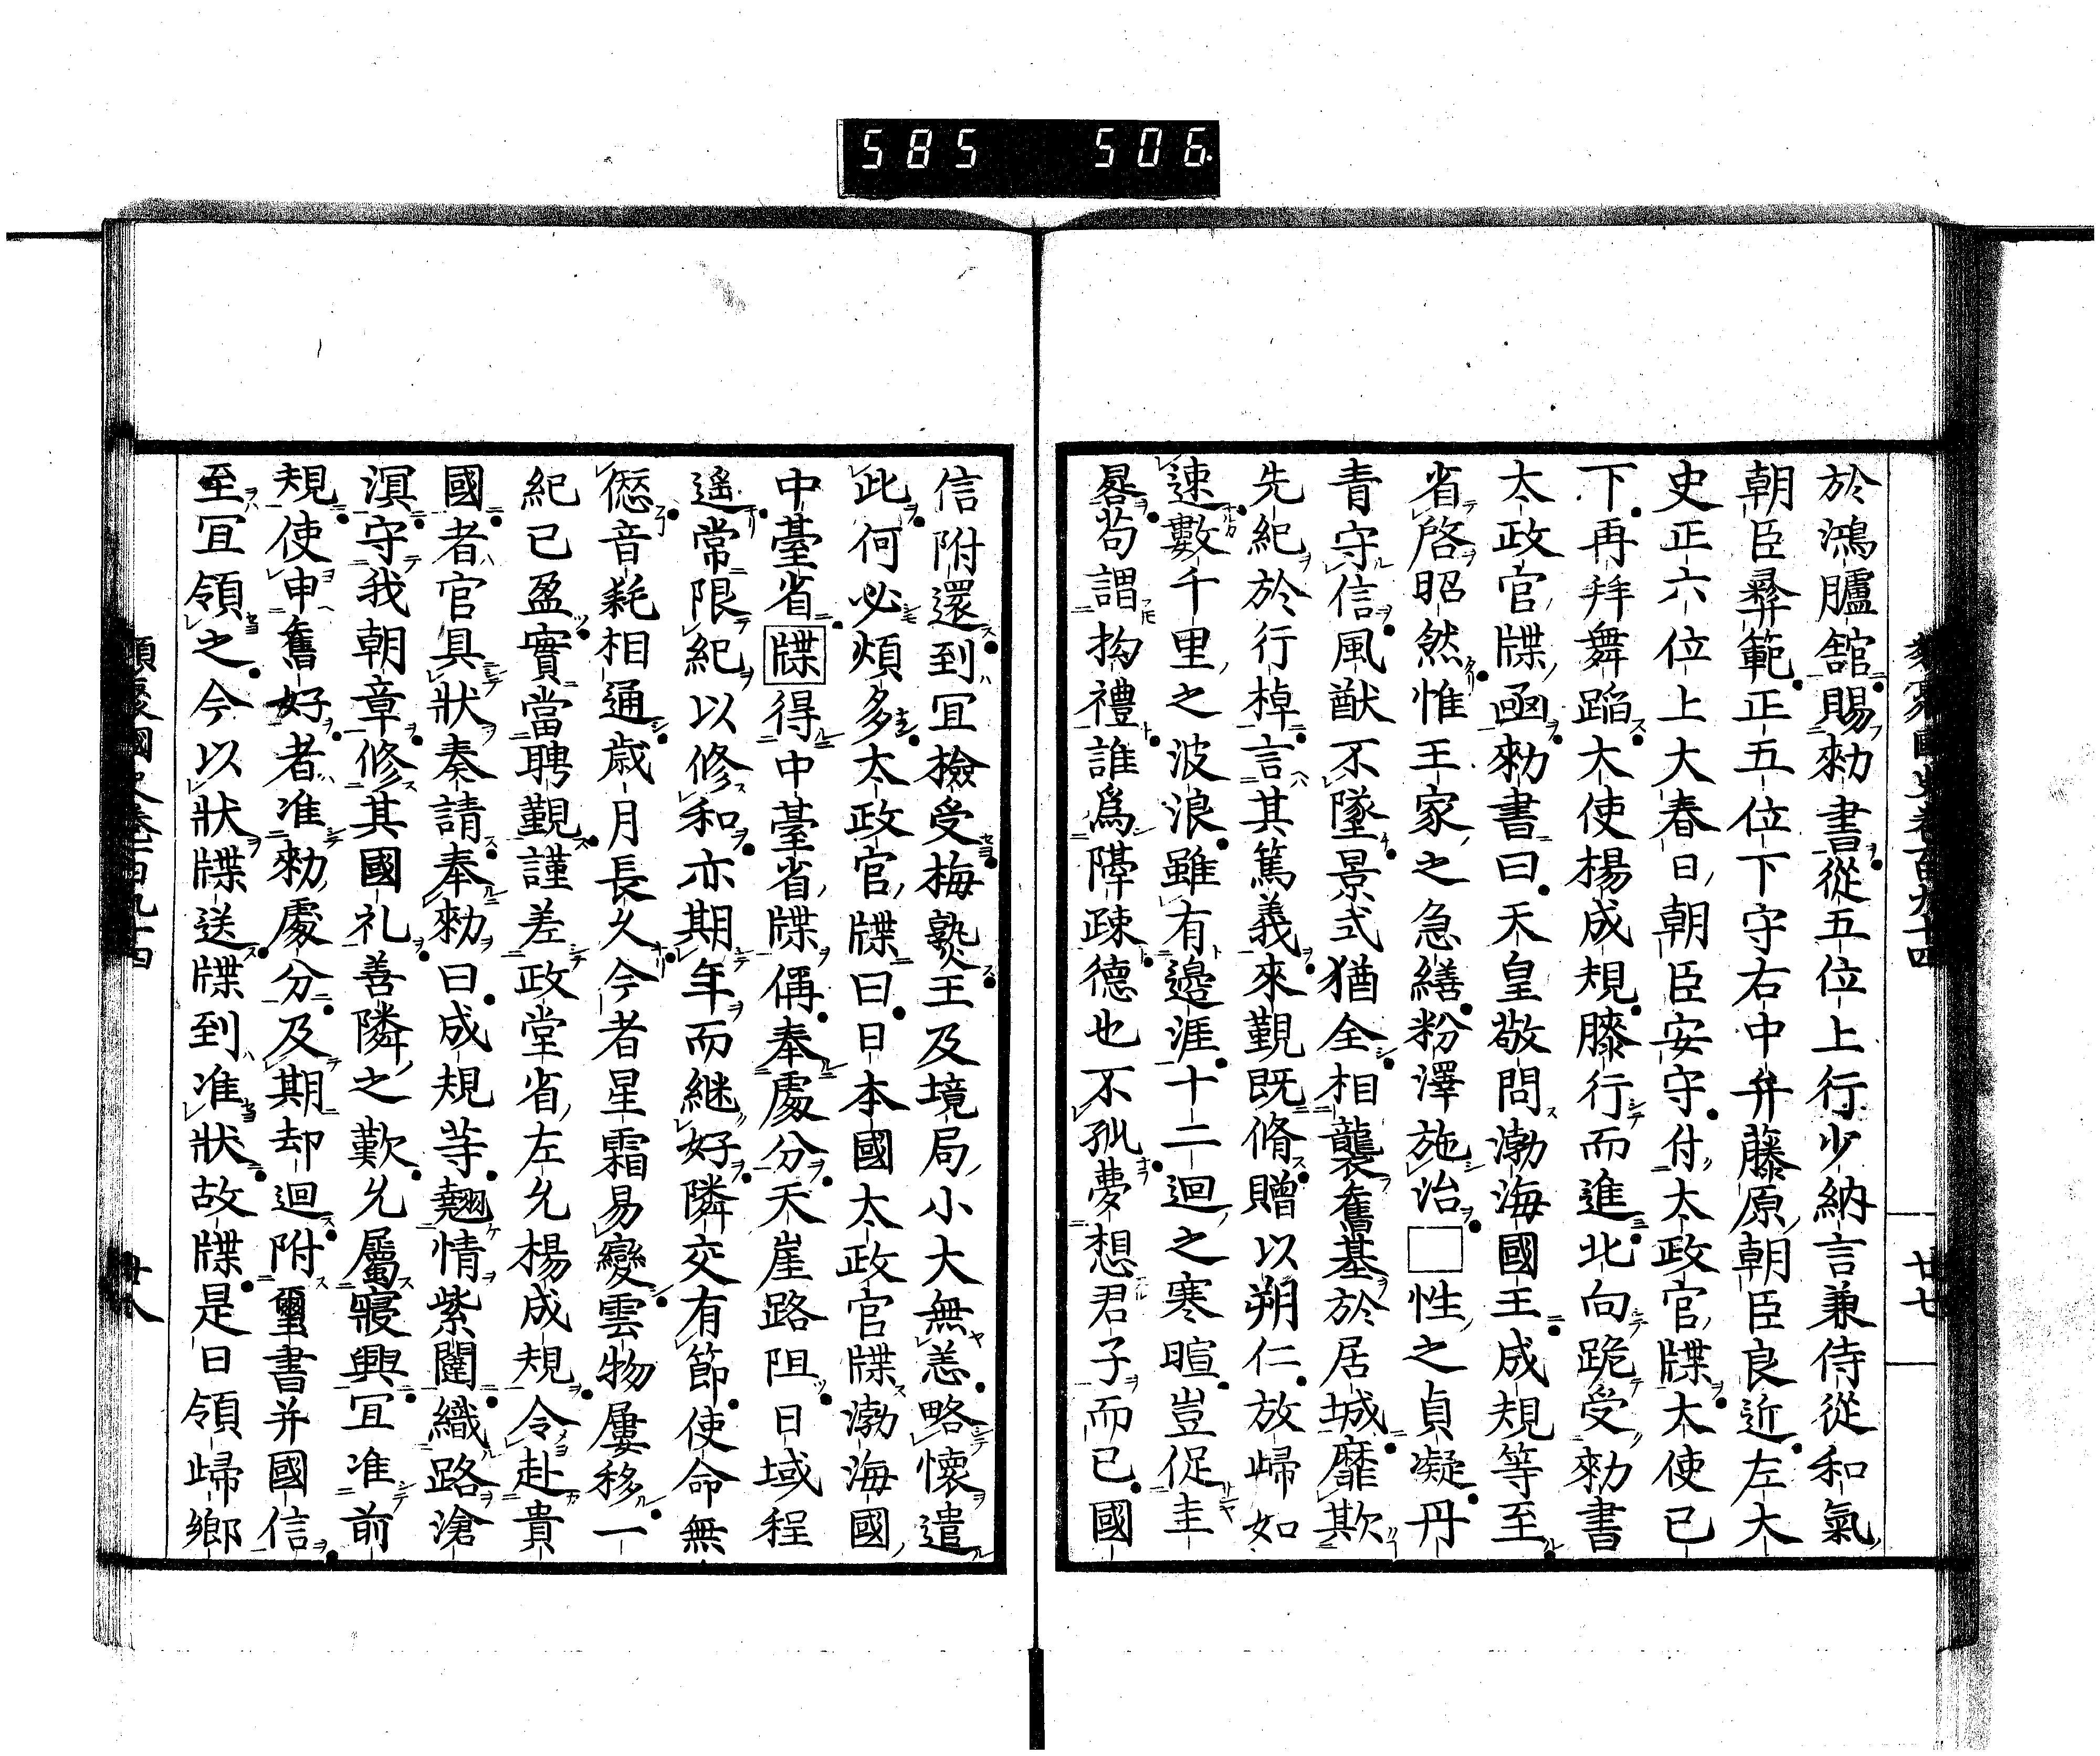 585 506
於鴻臚舘賜勑書從五位上行少納言兼侍從和氣
朝臣彜範正五位下守右中弁藤原朝臣良近左大
史正六位上大春日朝臣安守付太政官牒大使已
下再拜舞蹈大使楊成規膝行而進北向跪受勑書
太政官牒凾勑書曰天皇敬問渤海國王成規等至
省啓昭然惟王家之急繕粉澤施治□性之貞凝丹
青守信風猷不墜景式猶全相襲舊基於居城靡欺
先紀於行棹言其篤義來覲既脩贈以朔仁放歸如
速數千里之波浪雖有邊涯十二迴之寒暄豈促圭
晷苟謂拘禮誰爲隔疎德也不孤夢想君子而已國
信附還到冝撿受梅𤍨王及境局小大無恙略懷遣
此何必煩多太政官牒曰日本國太政官牒渤海國
中臺省牒得中臺省牒偁奉處分天崖路阻日域程
遥常限紀以修和亦期年而継好隣交有節使命無
愆音耗相通歳月長久今者星霜易變雲物屢移一
紀已盈實當聘覲謹差政堂省左允楊成規令赴貴
國者官具狀奏請奉勑曰成規等翹情紫闥織路滄
溟守我朝章修其國礼善隣之歎允屬寢興冝准前
規使申舊好者准勑處分及期却迴附璽書并國信
至冝領之今以狀牒送牒到准狀故牒是日領歸鄉
類聚國史卷百九十四
廿七
類聚國史卷百九十四
廿八